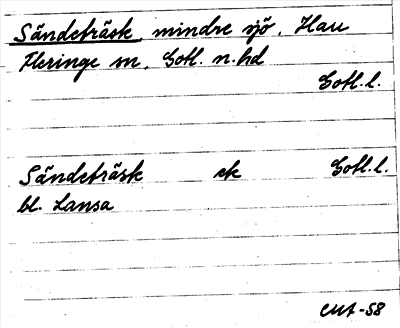 Sändeträsk, mindre sjö, Hau
Fleringe sn, Gotl. n. hd
Gotl. l.
Sändeträsk ek Gotl. l.
bl. Lansa
CMA-58